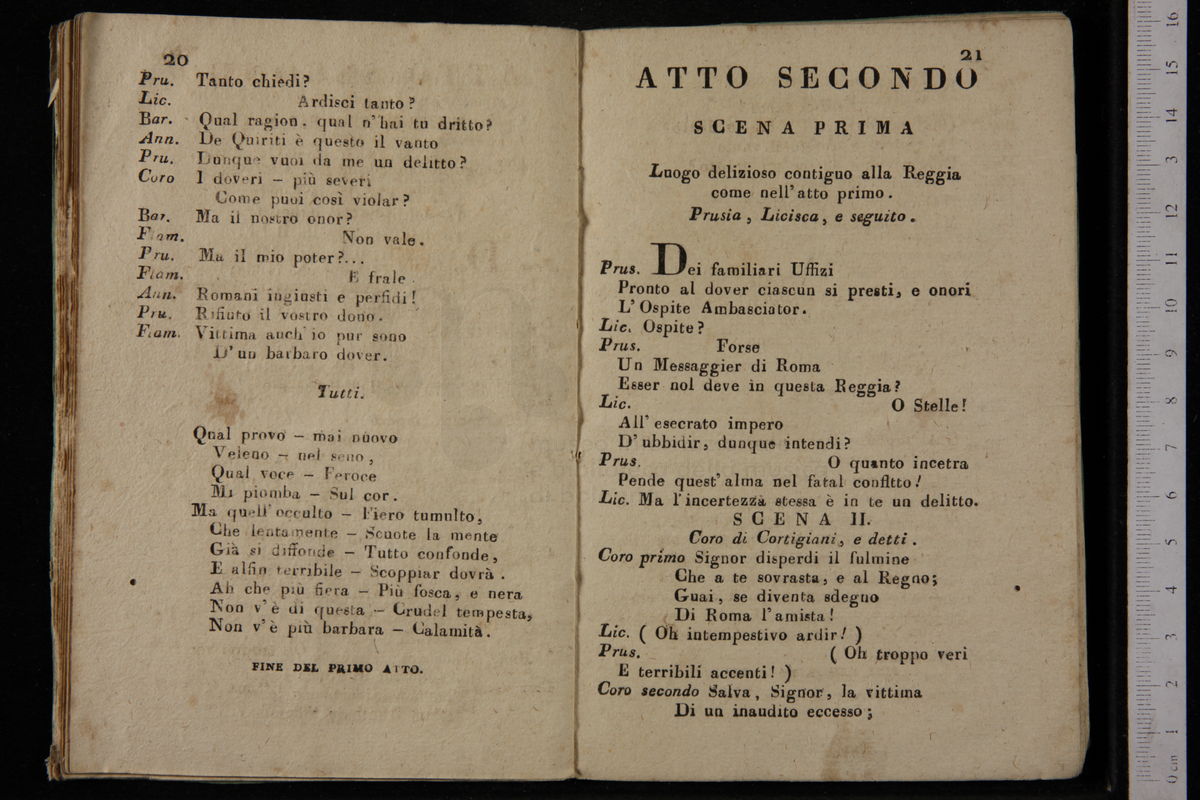 20
Pru. Tanto chiedi?
Lic. Ardisci tanto?
Bar. Qual ragion, qual n'hai tu dritto?
Ann. De Quiriti è questo il vanto
Pru. Dunque vuoi da me un delitto?
Coro I doveri – più severi
Come puoi così violar?
Bar. Ma il nostro onor?
Flam. Non vale.
Pru. Ma il mio poter?...
Flam. E frale.
Ann. Romani ingiusti e perfidi!
Pru. Rifiuto il vostro dono.
Flam. Vittima anch'io pur sono
D'un barbaro dover.
Tutti.
Qual provo – mai nuovo
Veleno – nel seno,
Qual voce – Feroce
Mi piomba – Sul cor.
Ma quell'occulto – Fiero tumulto,
Che lentamente – Scuote la mente
Già si diffonde – Tutto confonde,
E alfin terribile – Scoppiar dovrà.
Ah che più fiera – Più fosca, e nera
Non v'è di questa – Crudel tempesta,
Non v'è più barbara – Calamità.
FINE DEL PRIMO ATTO.
21
ATTO SECONDO
SCENA PRIMA
Luogo delizioso contiguo alla Reggia
come nell'atto primo.
Prusia, Licisca, e seguito.
Prus. Dei familiari Uffizi
Pronto al dover ciascun si presti, e onori
L'Ospite Ambasciator.
Lic. Ospite?
Prus. Forse
Un Messaggier di Roma
Esser nol deve in questa Reggia?
Lic. O Stelle!
All' esecrato impero
D'ubbidir, dunque intendi?
Prus. O quanto incetra
Pende quest'alma nel fatal confltto!
Lic. Ma l'incertezzà stessa è in te un delitto.
SCENA II.
Coro di Cortigiani, e detti.
Coro primo Signor disperdi il fulmine
Che a te sovrasta, e al Regno;
Guai, se diventa sdegno
Di Roma l'amista!
Lic. ( Oh intempestivo ardir! )
Prus. ( Oh troppo veri
E terribili accenti! )
Coro secondo Salva, Signor, la vittima
Di un inaudito eccesso;
16
15
14
13
12
11
10
9
8
7
6
5
4
3
2
1
0 cm